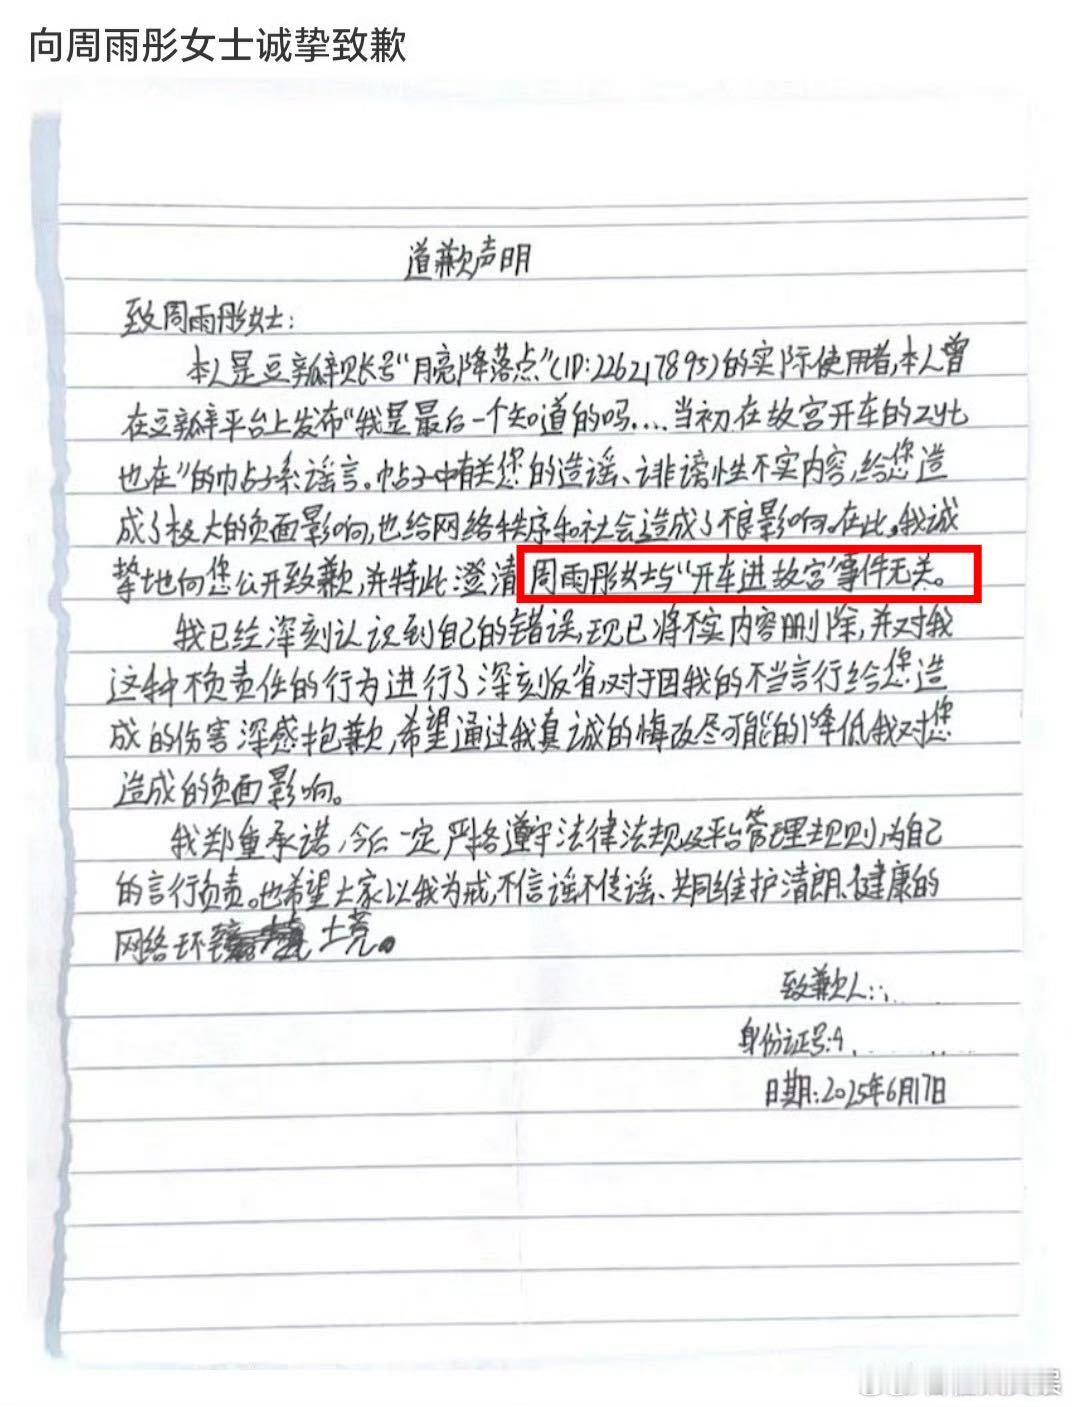 向周雨彤女士诚挚致歉
道歉声明
致周雨彤女士:
本人是豆瓣账号“月亮降落点”(ID:226217895)的实际使用者,本人曾
在豆瓣平台上发布“我是最后一个知道的吗....当初在故宫开车的zyt
也在”的帖子系谣言。帖子中有关您的造谣、诽谤性不实内容,给您造
成了极大的负面影响,也给网络秩序和社会造成了不良影响。在此,我诚
挚地向您公开致歉,并特此澄清周雨彤女士与“开车进故宫”事件无关。
我已经深刻认识到自己的错误,现已将不实内容删除,并对我
这种不负责任的行为进行了深刻反省,对于因我的不当言行给您造
成的伤害深感抱歉,希望通过我真诚的悔改尽可能的降低我对您
造成的负面影响。
我郑重承诺,今后一定严格遵守法律法规及平台管理规则,为自己
的言行负责。也希望大家以我为戒,不信谣不传谣、共同维护清朗、健康的
网络环
致歉人:
身份证号:4
日期:2025年6月17日